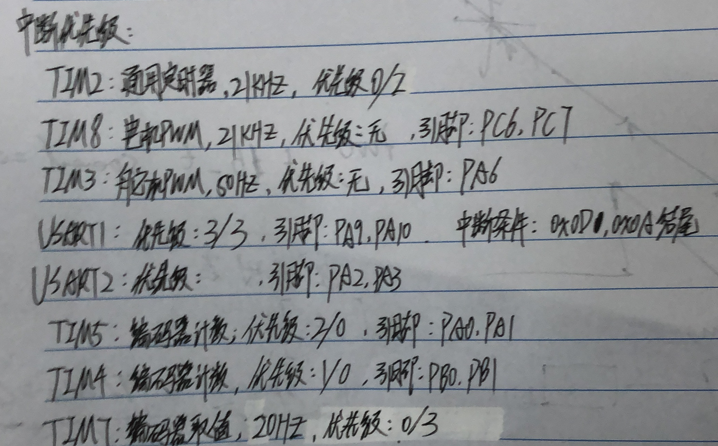 中断优先级:
TIM2:通用定时器,21KHZ,优先级0/2
TIM8:电机PWM,21KHZ,优先级:无,引脚:PC6,PC7
TIM3:舵机PWM,50HZ,优先级:无,引脚:PA6
USART1:优先级:3/3,引脚:PA9,PA10. 中断条件:0x0D,0x0A结尾
USART2:优先级: ,引脚:PA2,PA3
TIM5:编码器计数,优先级:2/0,引脚:PA0,PA1
TIM4:编码器计数,优先级:1/0,引脚:PB0,PB1
TIM7:编码器取值,20HZ,优先级:0/3